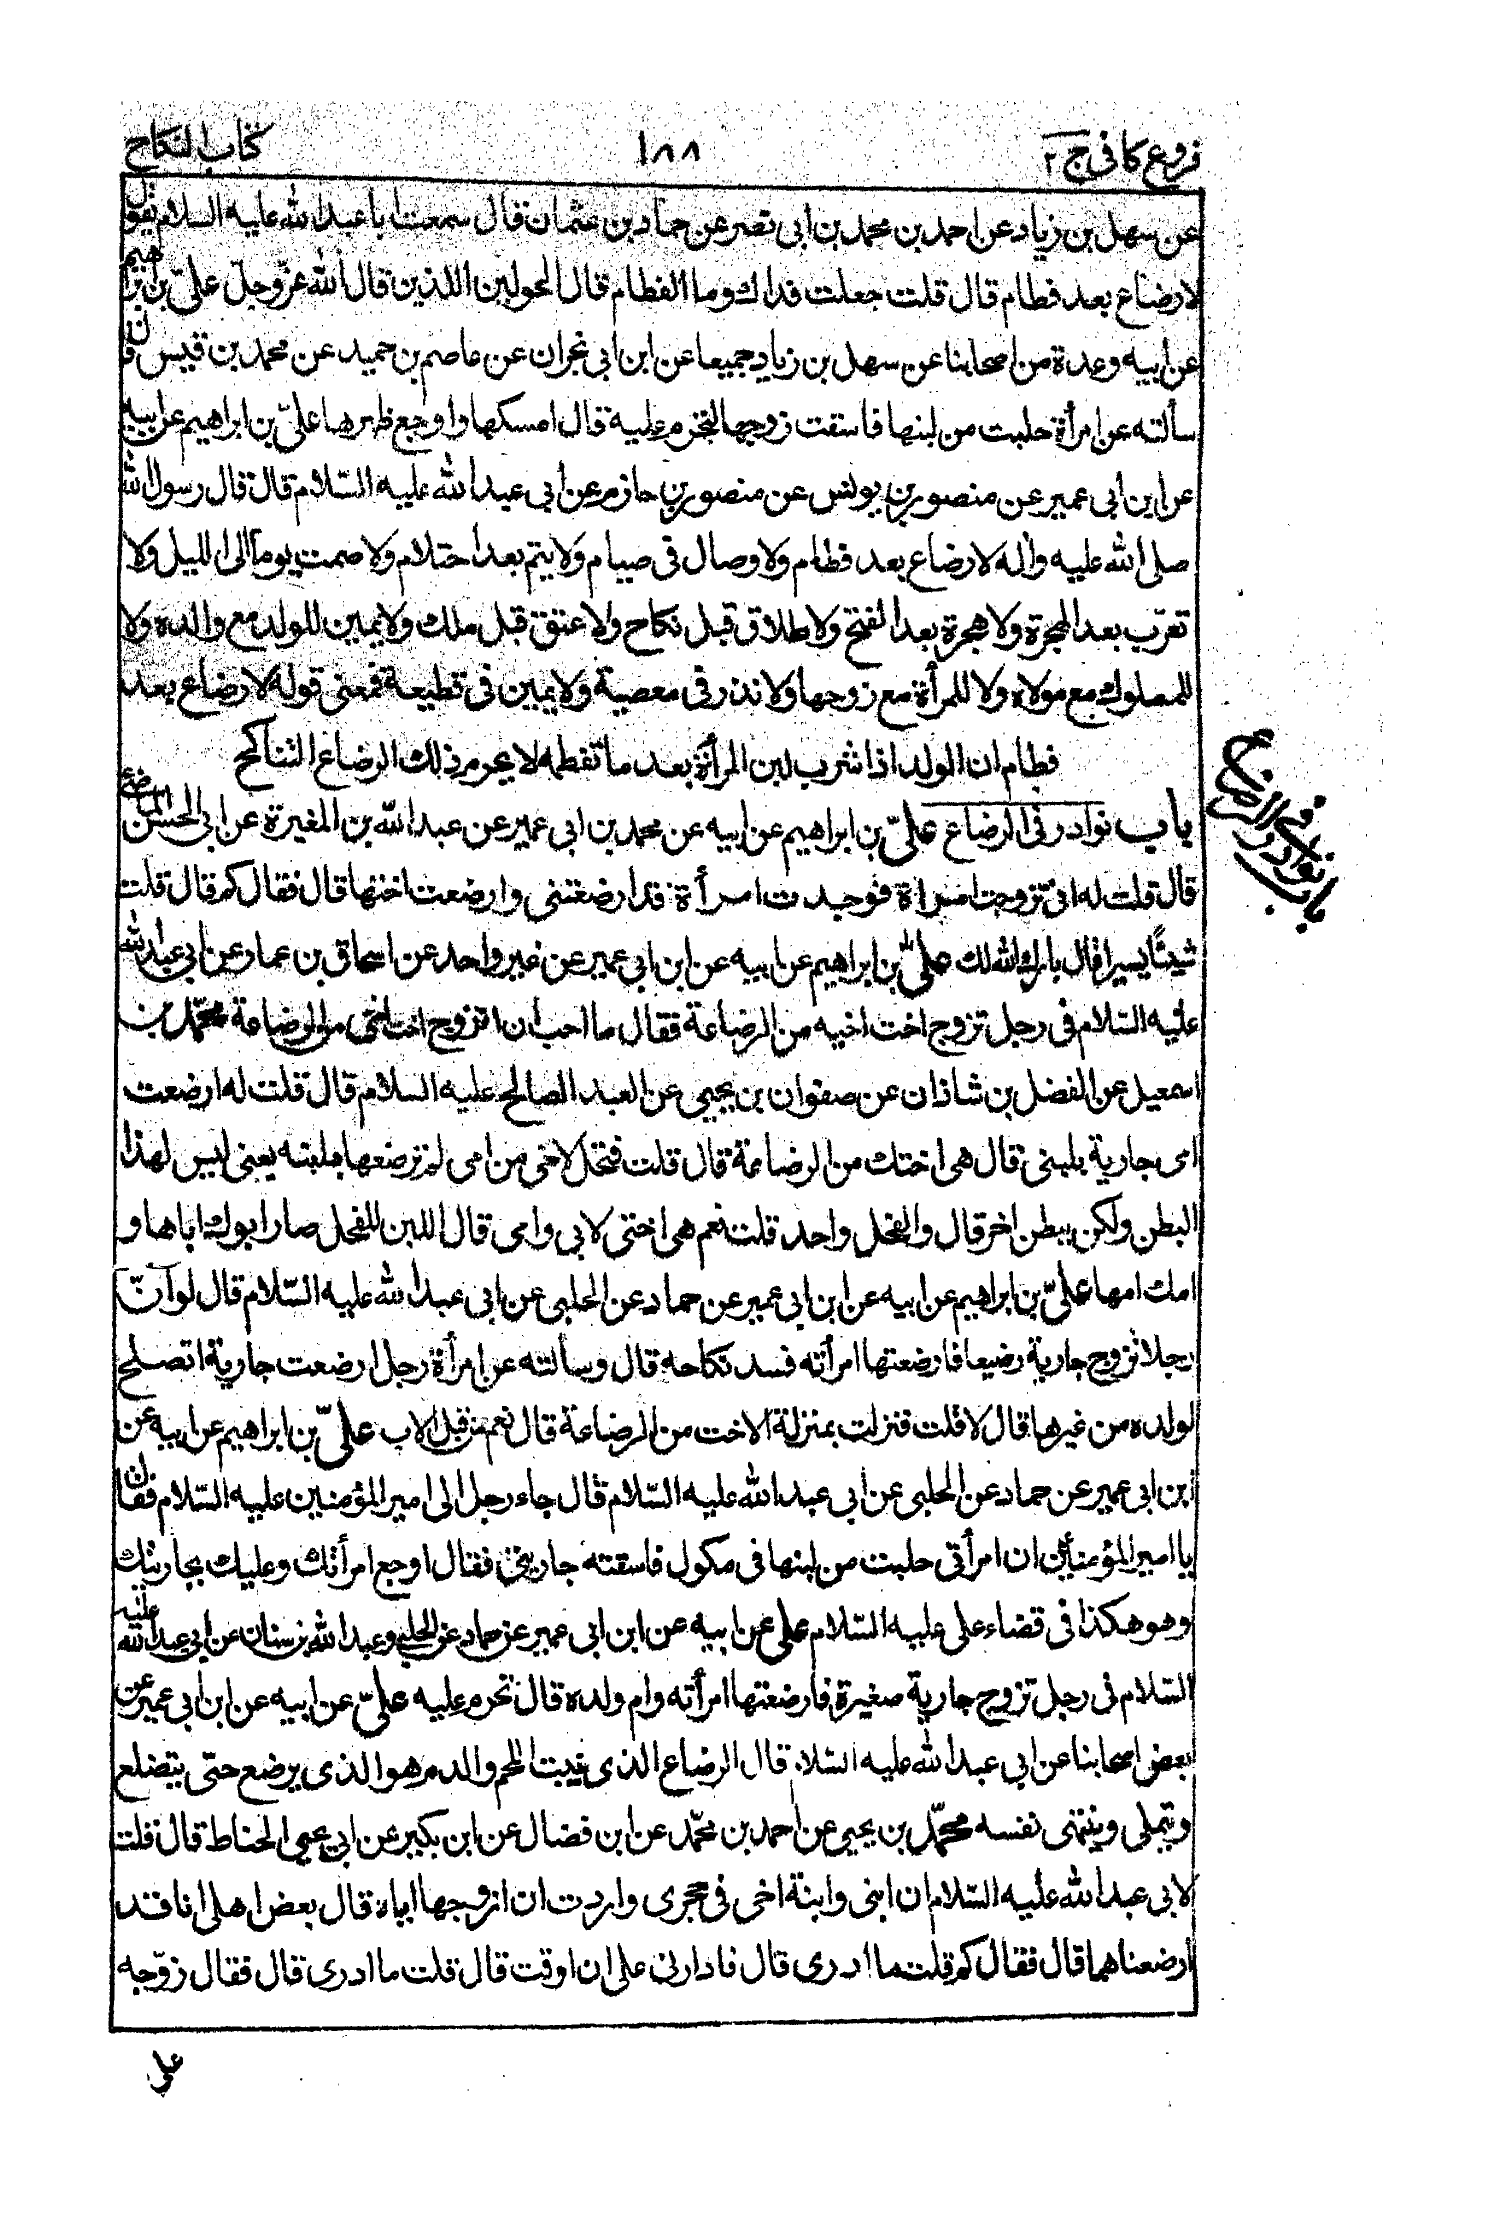 فروع كافى ج ٢
١٨٨
كتاب النكاح
عن سهل بن زياد عن احمد بن محمد بن ابى نصر عن حماد بن عثمان قال سمعت ابا عبد الله عليه السلام يقول
لا رضاع بعد فطام قال قلت جعلت فداك وما الفطام قال الحولين اللذين قال الله عز وجل علىّ بن ابراهيم
عن ابيه وعدة من اصحابنا عن سهل بن زياد جميعا عن ابن ابى نجران عن عاصم بن حميد عن محمد بن قيس قال
سألته عن امرأة حلبت من لبنها فاسقت زوجها لتحرم عليه قال امسكها واوجع ظهرها علىّ بن ابراهيم عن ابيه
عن ابن ابى عمير عن منصور بن يونس عن منصور بن حازم عن ابى عبد الله عليه السّلام قال قال رسول الله
صلى الله عليه واله لا رضاع بعد فطام ولا وصال فى صيام ولا يتم بعد احتلام ولا صمت يوما الى الليل ولا
تعرّب بعد الهجرة ولا هجرة بعد الفتح ولا طلاق قبل نكاح ولا عتق قبل ملك ولا يمين للولد مع والده ولا
للمملوك مع مولاه ولا للمرأة مع زوجها ولا نذر فى معصية ولا يمين فى قطيعة فمعنى قوله لا رضاع بعد
فطام ان الولد اذا شرب لبن المرأة بعد ما تفطمه لا يحرم ذلك الرضاع التناكح
باب نوادر فى الرضاع علىّ بن ابراهيم عن ابيه عن محمد بن ابى عمير عن عبد الله بن المغيرة عن ابى الحسن الماضى ع
باب نوادر فى الرضاع
قال قلت له انى تزوجت امرأة فوجدت امرأة قد ارضعتنى وارضعت اختها قال فقال كم قال قلت
شيئًا يسيرا قال بارك الله لك علىّ بن ابراهيم عن ابيه عن ابن ابى عمير عن غير واحد عن اسحاق بن عمار عن ابى عبد الله
عليه السّلام فى رجل تزوج اخت اخيه من الرضاعة فقال ما احب ان اتزوج اخت اخى من الرضاعة محمّد بن
اسمعيل عن الفضل بن شاذان عن صفوان بن يحيى عن العبد الصالح عليه السلام قال قلت له ارضعت
امى جارية بلبنى قال هى اختك من الرضاعة قال قلت فتحل لاخى من امى لم ترضعها بلبنه يعنى ليس لهذا
البطن ولكن ببطن اخر قال والفحل واحد قلت نعم هى اختى لابى وامى قال اللبن للفحل صار ابوك اباها و
امك امها علىّ بن ابراهيم عن ابيه عن ابن ابى عمير عن حماد عن الحلبى عن ابى عبد الله عليه السّلام قال لو انّ
رجلا تزوج جارية رضيعا فارضعتها امرأته فسد نكاحه قال وسألته عن امرأة رجل ارضعت جارية اتصلح
لولده من غيرها قال لا قلت فنزلت بمنزلة الاخت من الرضاعة قال نعم من قبل الاب علىّ بن ابراهيم عن ابيه عن
ابن ابى عمير عن حماد عن الحلبى عن ابى عبد الله عليه السّلام قال جاء رجل الى امير المؤمنين عليه السّلام فقال
يا امير المؤمنين ان امرأتى حلبت من لبنها فى مكول فاسقته جاريتى فقال اوجع امرأتك وعليك بجاريتك
وهو هكذا فى قضاء على عليه السّلام على عن ابيه عن ابن ابى عمير عن حماد عن الحلبى وعبد الله بن سنان عن ابى عبد الله عليه
السّلام فى رجل تزوج جارية صغيرة فارضعتها امرأته وام ولده قال تحرم عليه علىّ عن ابيه عن ابن ابى عمير عن
بعض اصحابنا عن ابى عبد الله عليه السّلام قال الرضاع الذى ينبت اللحم والدم هو الذى يرضع حتّى يتضلع
ويتملى وينتهى نفسه محمّد بن يحيى عن احمد بن محمّد عن ابن فضال عن ابن بكير عن ابى يحيى الحناط قال قلت
لابى عبد الله عليه السّلام ان ابنى وابنة اخى فى حجرى واردت ان ازوجها اياه قال بعض اهلى انا قد
ارضعناهما قال فقال كم قلت ما ادرى قال فادارنى على ان اوقت قال قلت ما ادرى قال فقال زوّجه
على